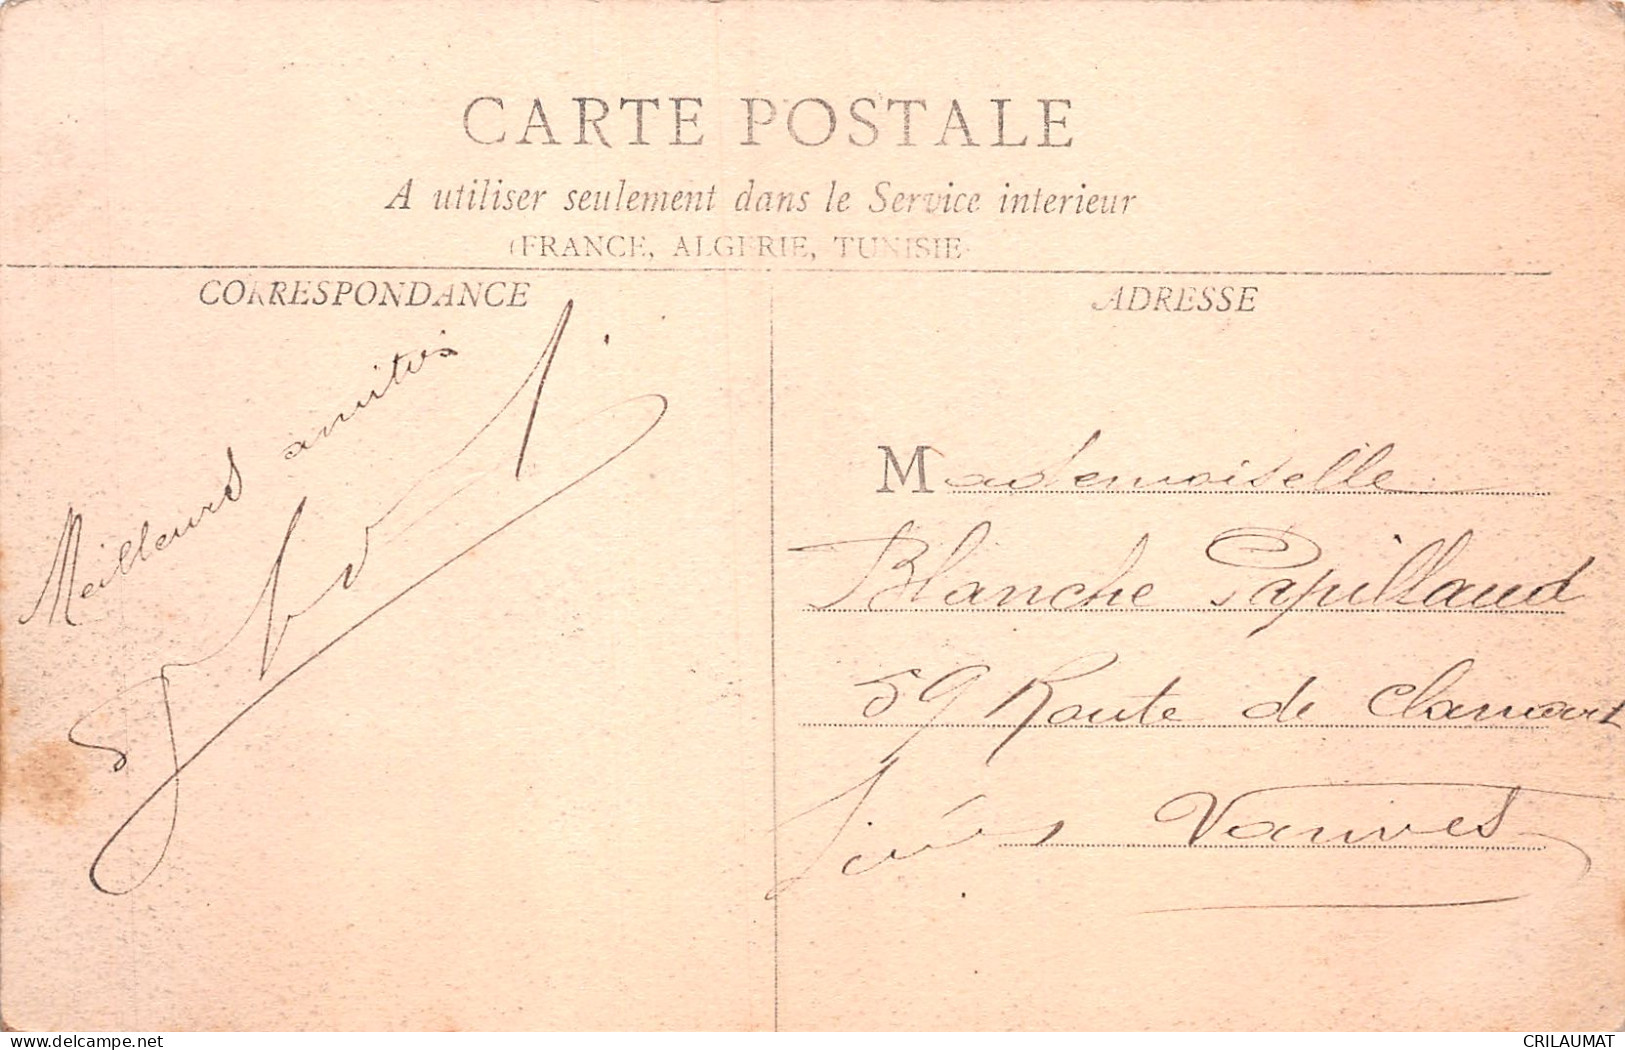 CARTE POSTALE
A utiliser seulement dans le Service interieur
(FRANCE, ALGERIE, TUNISIE
CORRESPONDANCE
Meilleurs amitiés
ADRESSE
Mademoiselle
Blanche Papillaud
59 Route de Clamart
Vanves
delcampe.net
CRILAUMAT